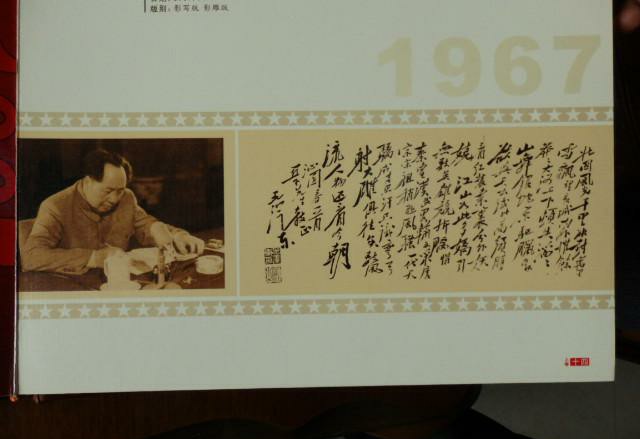 版别：影写版 影雕版
1967
北国风光千里冰封万里
雪飘望长城内外惟余
莽莽大河上下顿失滔滔
山舞银蛇原驰腊象
欲与天公试比高须晴日
看红装素裹分外妖
娆 江山如此多娇引
无数英雄竞折腰惜
秦皇汉武略输文采唐
宗宋祖稍逊风骚一代天
骄成吉思汗只识弯弓
射大雕俱往矣数风
流人物还看今朝
沁园春 雪
教正
毛泽东
十四